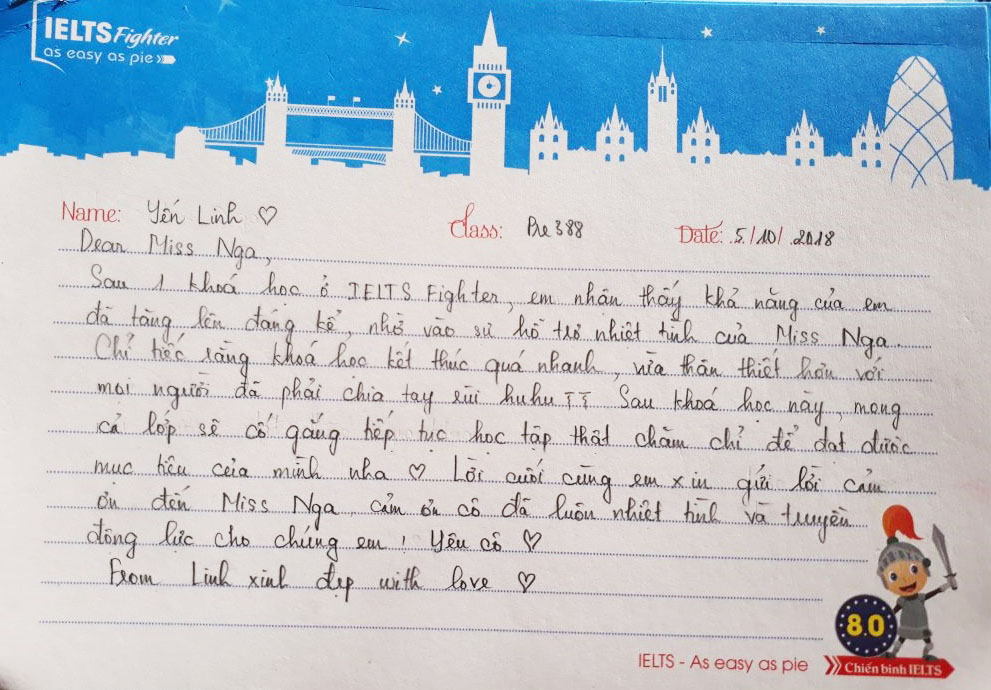 IELTS Fighter
as easy as pie
Name: Yến Linh ♡
Class: Pre 388
Date: 5/10/2018
Dear Miss Nga,
Sau 1 khoá học ở IELTS Fighter, em nhận thấy khả năng của em
đã tăng lên đáng kể, nhờ vào sự hỗ trợ nhiệt tình của Miss Nga.
Chỉ tiếc rằng khoá học kết thúc quá nhanh, vừa thân thiết hơn với
mọi người đã phải chia tay rùi huhu TT Sau khoá học này, mong
cả lớp sẽ cố gắng tiếp tục học tập thật chăm chỉ để đạt được
mục tiêu của mình nha ♡ Lời cuối cùng em xin gửi lời cảm
ơn đến Miss Nga, cảm ơn cô đã luôn nhiệt tình và truyền
động lực cho chúng em! Yêu cô ♡
From Linh xinh đẹp with love ♡
8.0
IELTS - As easy as pie
Chiến binh IELTS